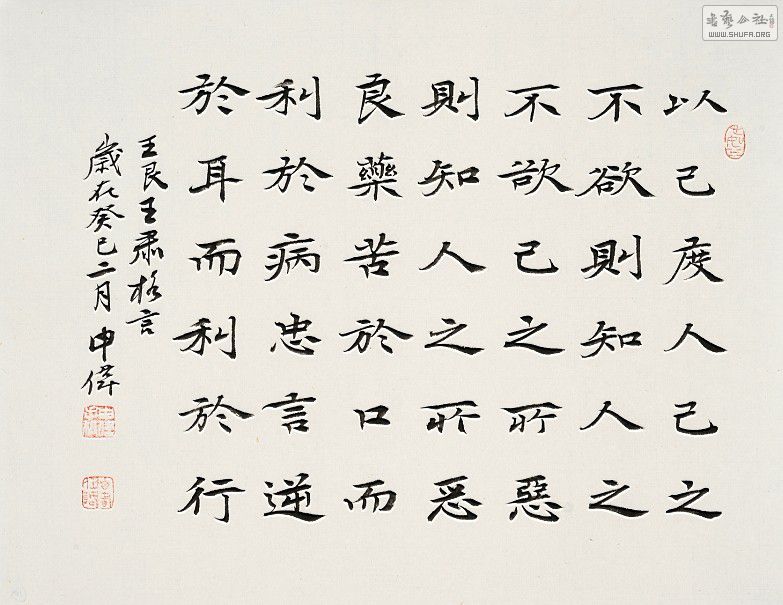 以己度人己之
不欲則知人之
不欲己之所惡
則知人之所恶
良藥苦於口而
利於病忠言逆
於耳而利於行
王艮王肅格言
歲在癸巳二月申偉
書藝公社
WWW.SHUFA.ORG